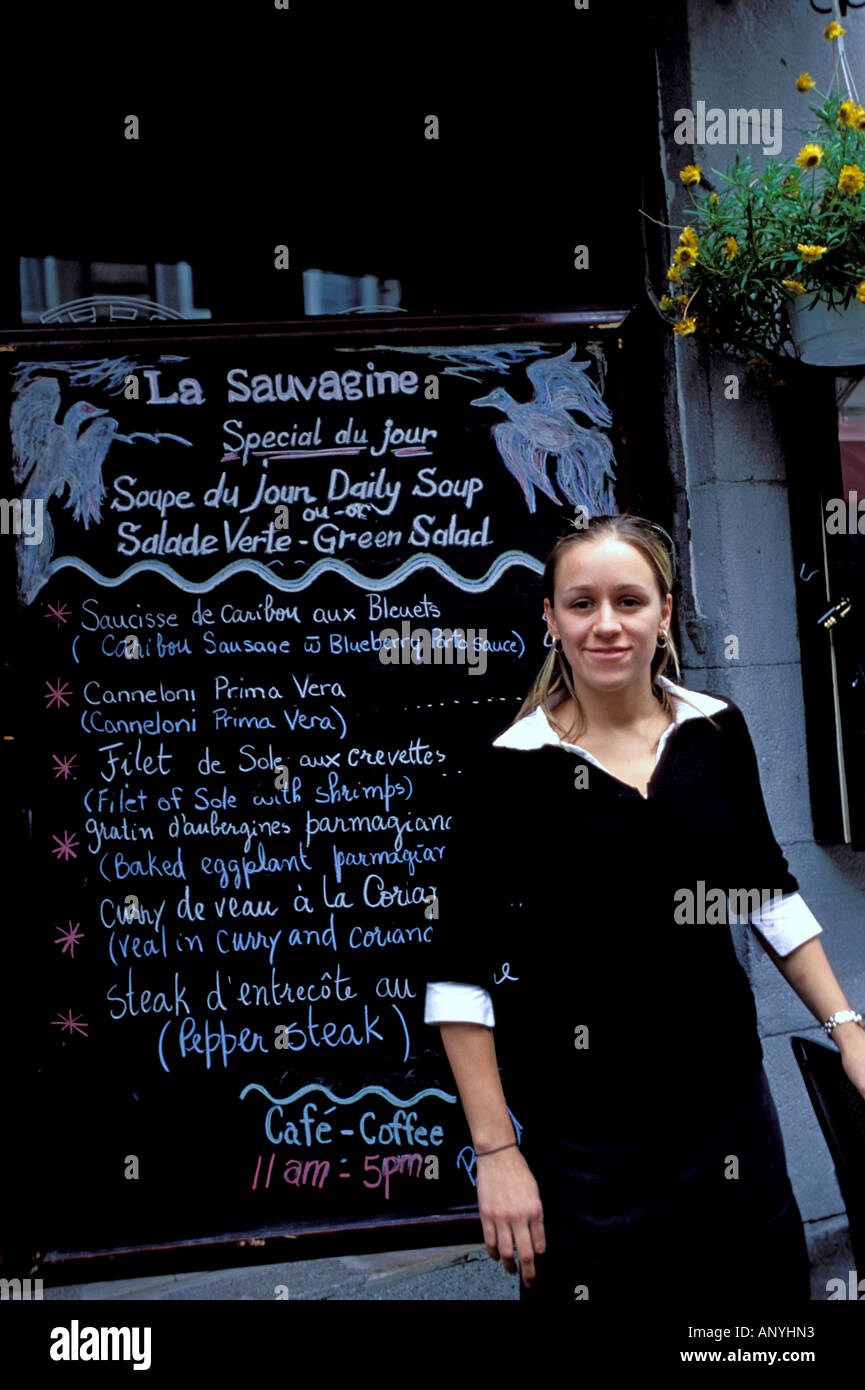 La Sauvagine
Special du jour
Soupe du Jour Daily Soup
ou-or
Salade Verte - Green Salad
* Saucisse de Caribou aux Bleuets
(Caribou Sausage w Blueberry Porto Sauce)
* Canneloni Prima Vera
(Canneloni Prima Vera)
* Filet de Sole aux crevettes
(Filet of Sole with shrimps)
* gratin d'aubergines parmagiano
(Baked eggplant parmagian
* Curry de veau à la Corian
(veal in curry and corianc
* Steak d'entrecôte au
(Pepper steak)
Café - Coffee
11 am - 5pm
alamy
Image ID: ANYHN3
www.alamy.com